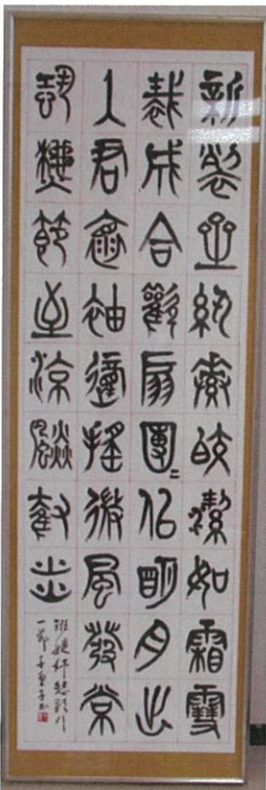 新裂齊紈素皎潔如霜雪
裁成合歡扇團〻似明月出
入君懷袖動搖微風發常
恐秋節至涼飆
班婕妤怨歌行
一節